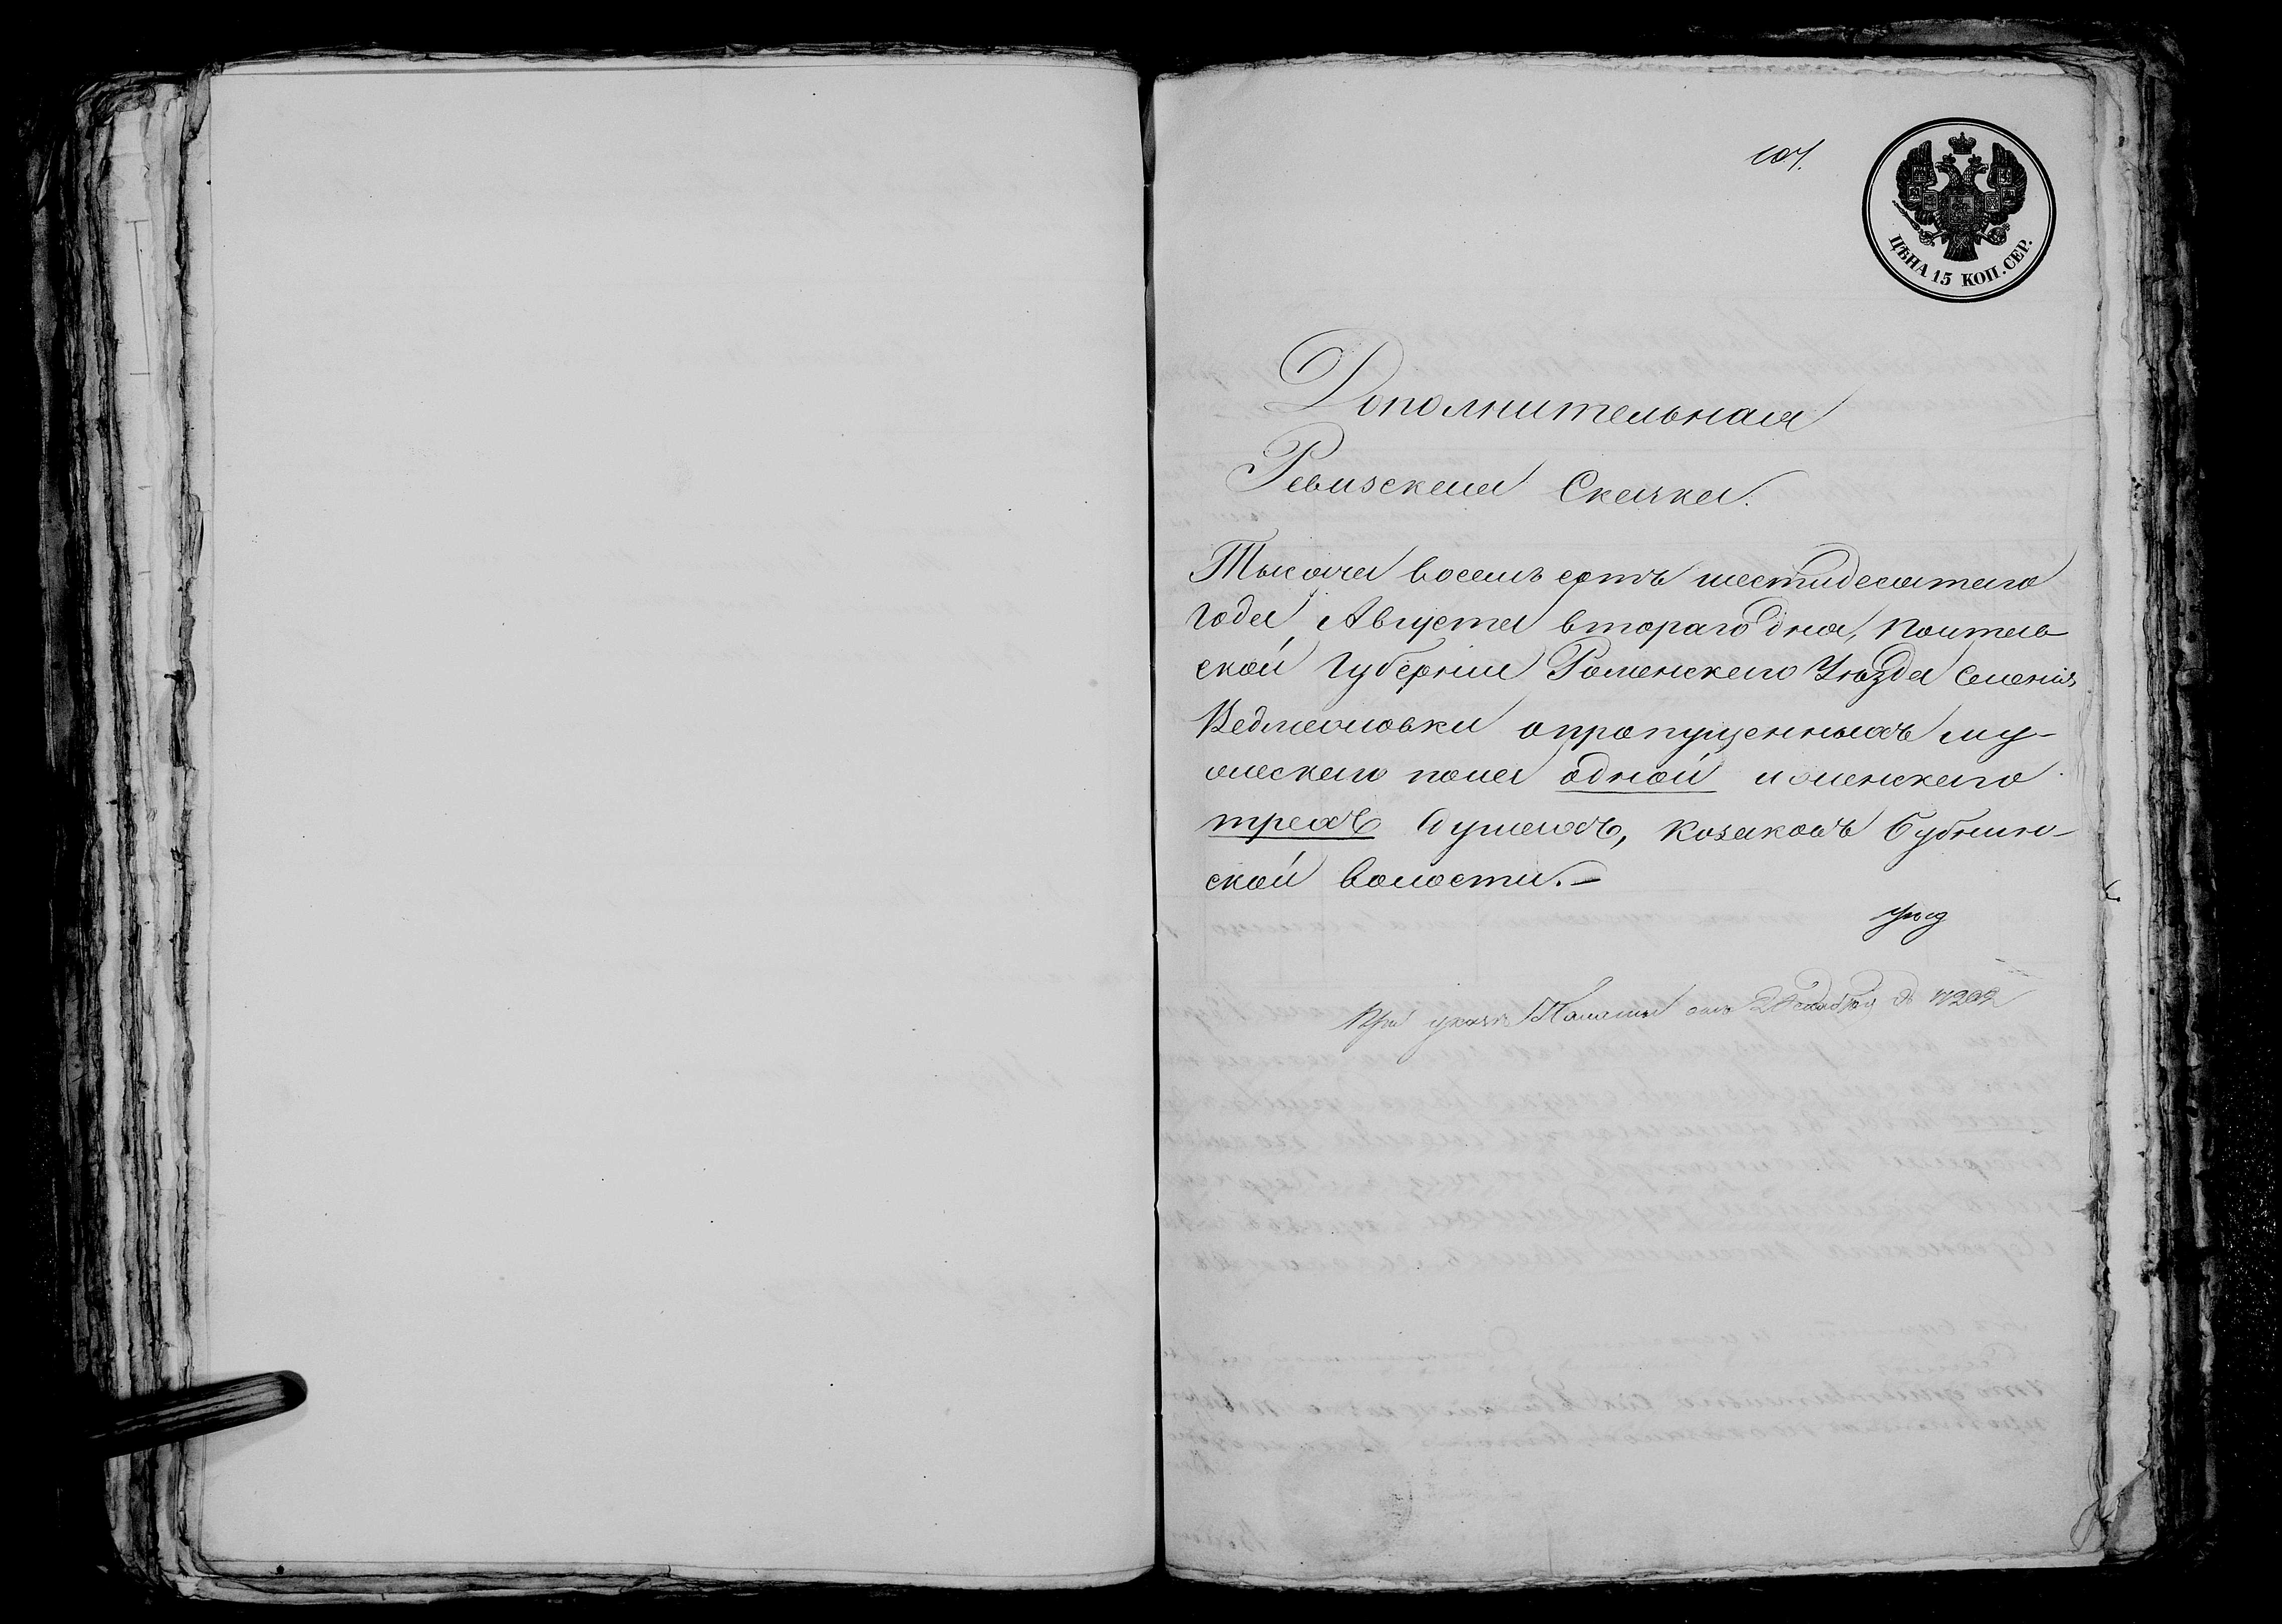 107.
ЦѢНА 15 КОП. СЕР.
Дополнительная
Ревизская Сказка.
Тысяча восемь сотъ шестидесятаго
года Августа втораго дня, Полтав-
ской Губерніи Роменскаго Уѣзда Селенія
Ведмежовки о пропущенныхъ му-
жескаго пола одной и женскаго
трехъ душахъ, козаковъ Бубнин-
ской волости.—
При указѣ Палаты отъ 2 Декабря за №